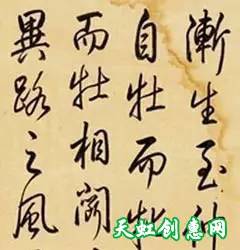 漸生至
自牡而
而牡相
異路之風
天虹创意网